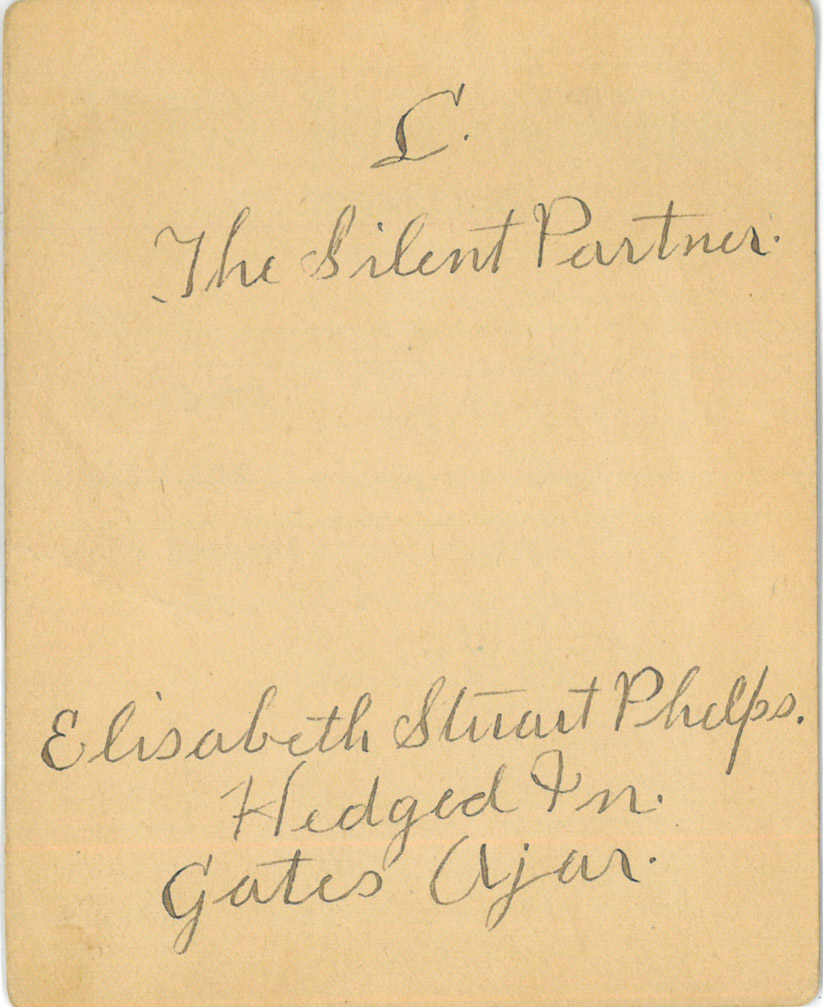 L.
The Silent Partner.
Elisabeth Stuart Phelps.
Hedged In.
Gates Ajar.